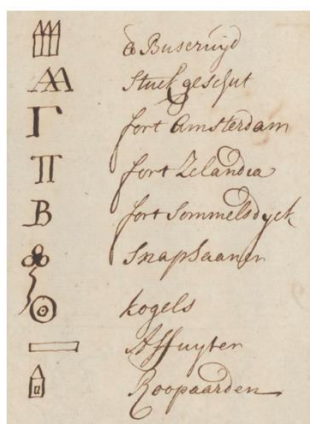 Buscruijd
Stuk geschut
Γ fort Amsterdam
Π fort Zelandia
B fort Sommelsdyck
Snaphaanen
kogels
Affuyten
Roopaarden